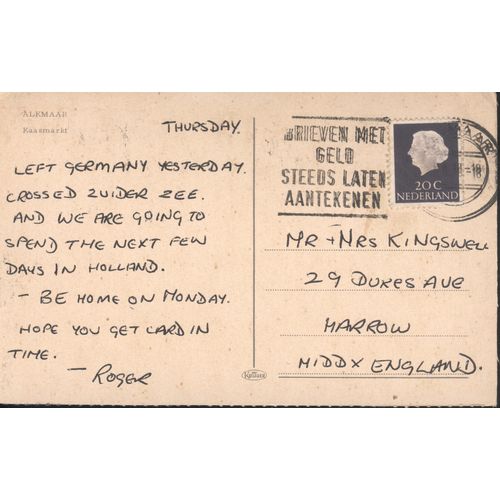 ALKMAAR
Kaasmarkt
THURSDAY.
LEFT GERMANY YESTERDAY.
CROSSED ZUIDER ZEE.
AND WE ARE GOING TO
SPEND THE NEXT FEW
DAYS IN HOLLAND.
- BE HOME ON MONDAY.
HOPE YOU GET CARD IN
TIME.
- ROGER
BRIEVEN MET
GELD
STEEDS LATEN
AANTEKENEN
20 C
NEDERLAND
MR + MRS KINGSWELL
29 DUKES AVE
HARROW
MIDDX ENGLAND.